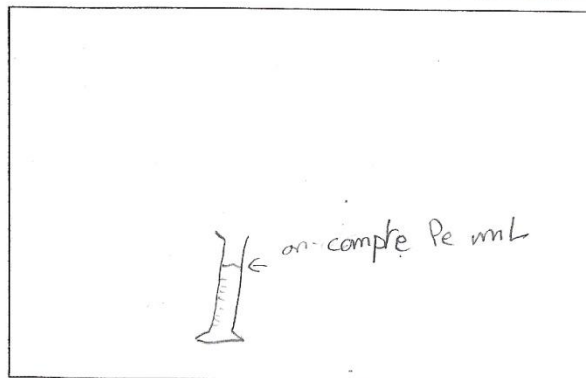 on compte le mL